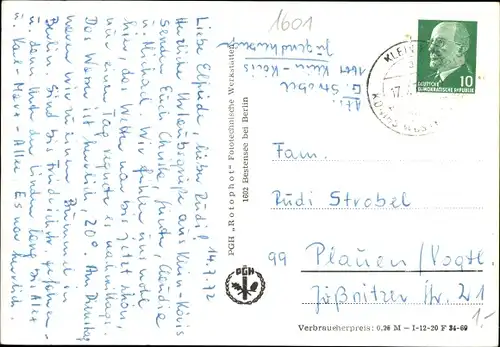 1601
Abs.
E. Strobel
1601 Klein-Köris
Jugendhaus
14.7.72
Liebe Elfriede, lieber Rudi!
Herzliche Urlaubsgrüße aus Klein-Köris
senden Euch Christa, Günter, Claudia
u. Michael. Wir fühlen uns wohl
hier, das Wetter war bis jetzt schön,
nur einen Tag regnete es nachmittags.
Das Wasser ist herrlich, 20°. Am Dienstag
waren wir zu einem Bummel in
Berlin. Sind bis Friedrichstr. gefahren
u. dann Unter den Linden lang bis Alex
u. Karl-Marx-Allee. Es war herrlich.
PGH „Rotophot" Fototechnische Werkstätten
1602 Bestensee bei Berlin
PGH
KLEIN
17.7.
KÖNIGS WUST
DEUTSCHE
DEMOKRATISCHE REPUBLIK
10
Fam.
Rudi Strobel
99 Plauen/Vogtl.
Jößnitzer Str. 21
1,-
Verbraucherpreis: 0,26 M – I-12-20 F 34-69